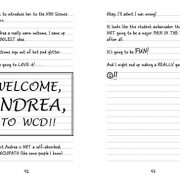 to introduce her to the MNI Scenes
n.
ndrea a really warm welcome, I came up
COOLEST idea.
elcome sign out of hot pink glitter.
s going to LOVE it! . . .
WELCOME,
ANDREA,
TO WCD!!
t Andrea is NOT a self-absorbed,
OCIOPATH like some people I know!!
92
Okay, I'll admit I was wrong!
It looks like this student ambassador thing
NOT going to be a major PAIN in the
after all.
It's going to be FUN!
And I might end up making a REALLY good
!!
93